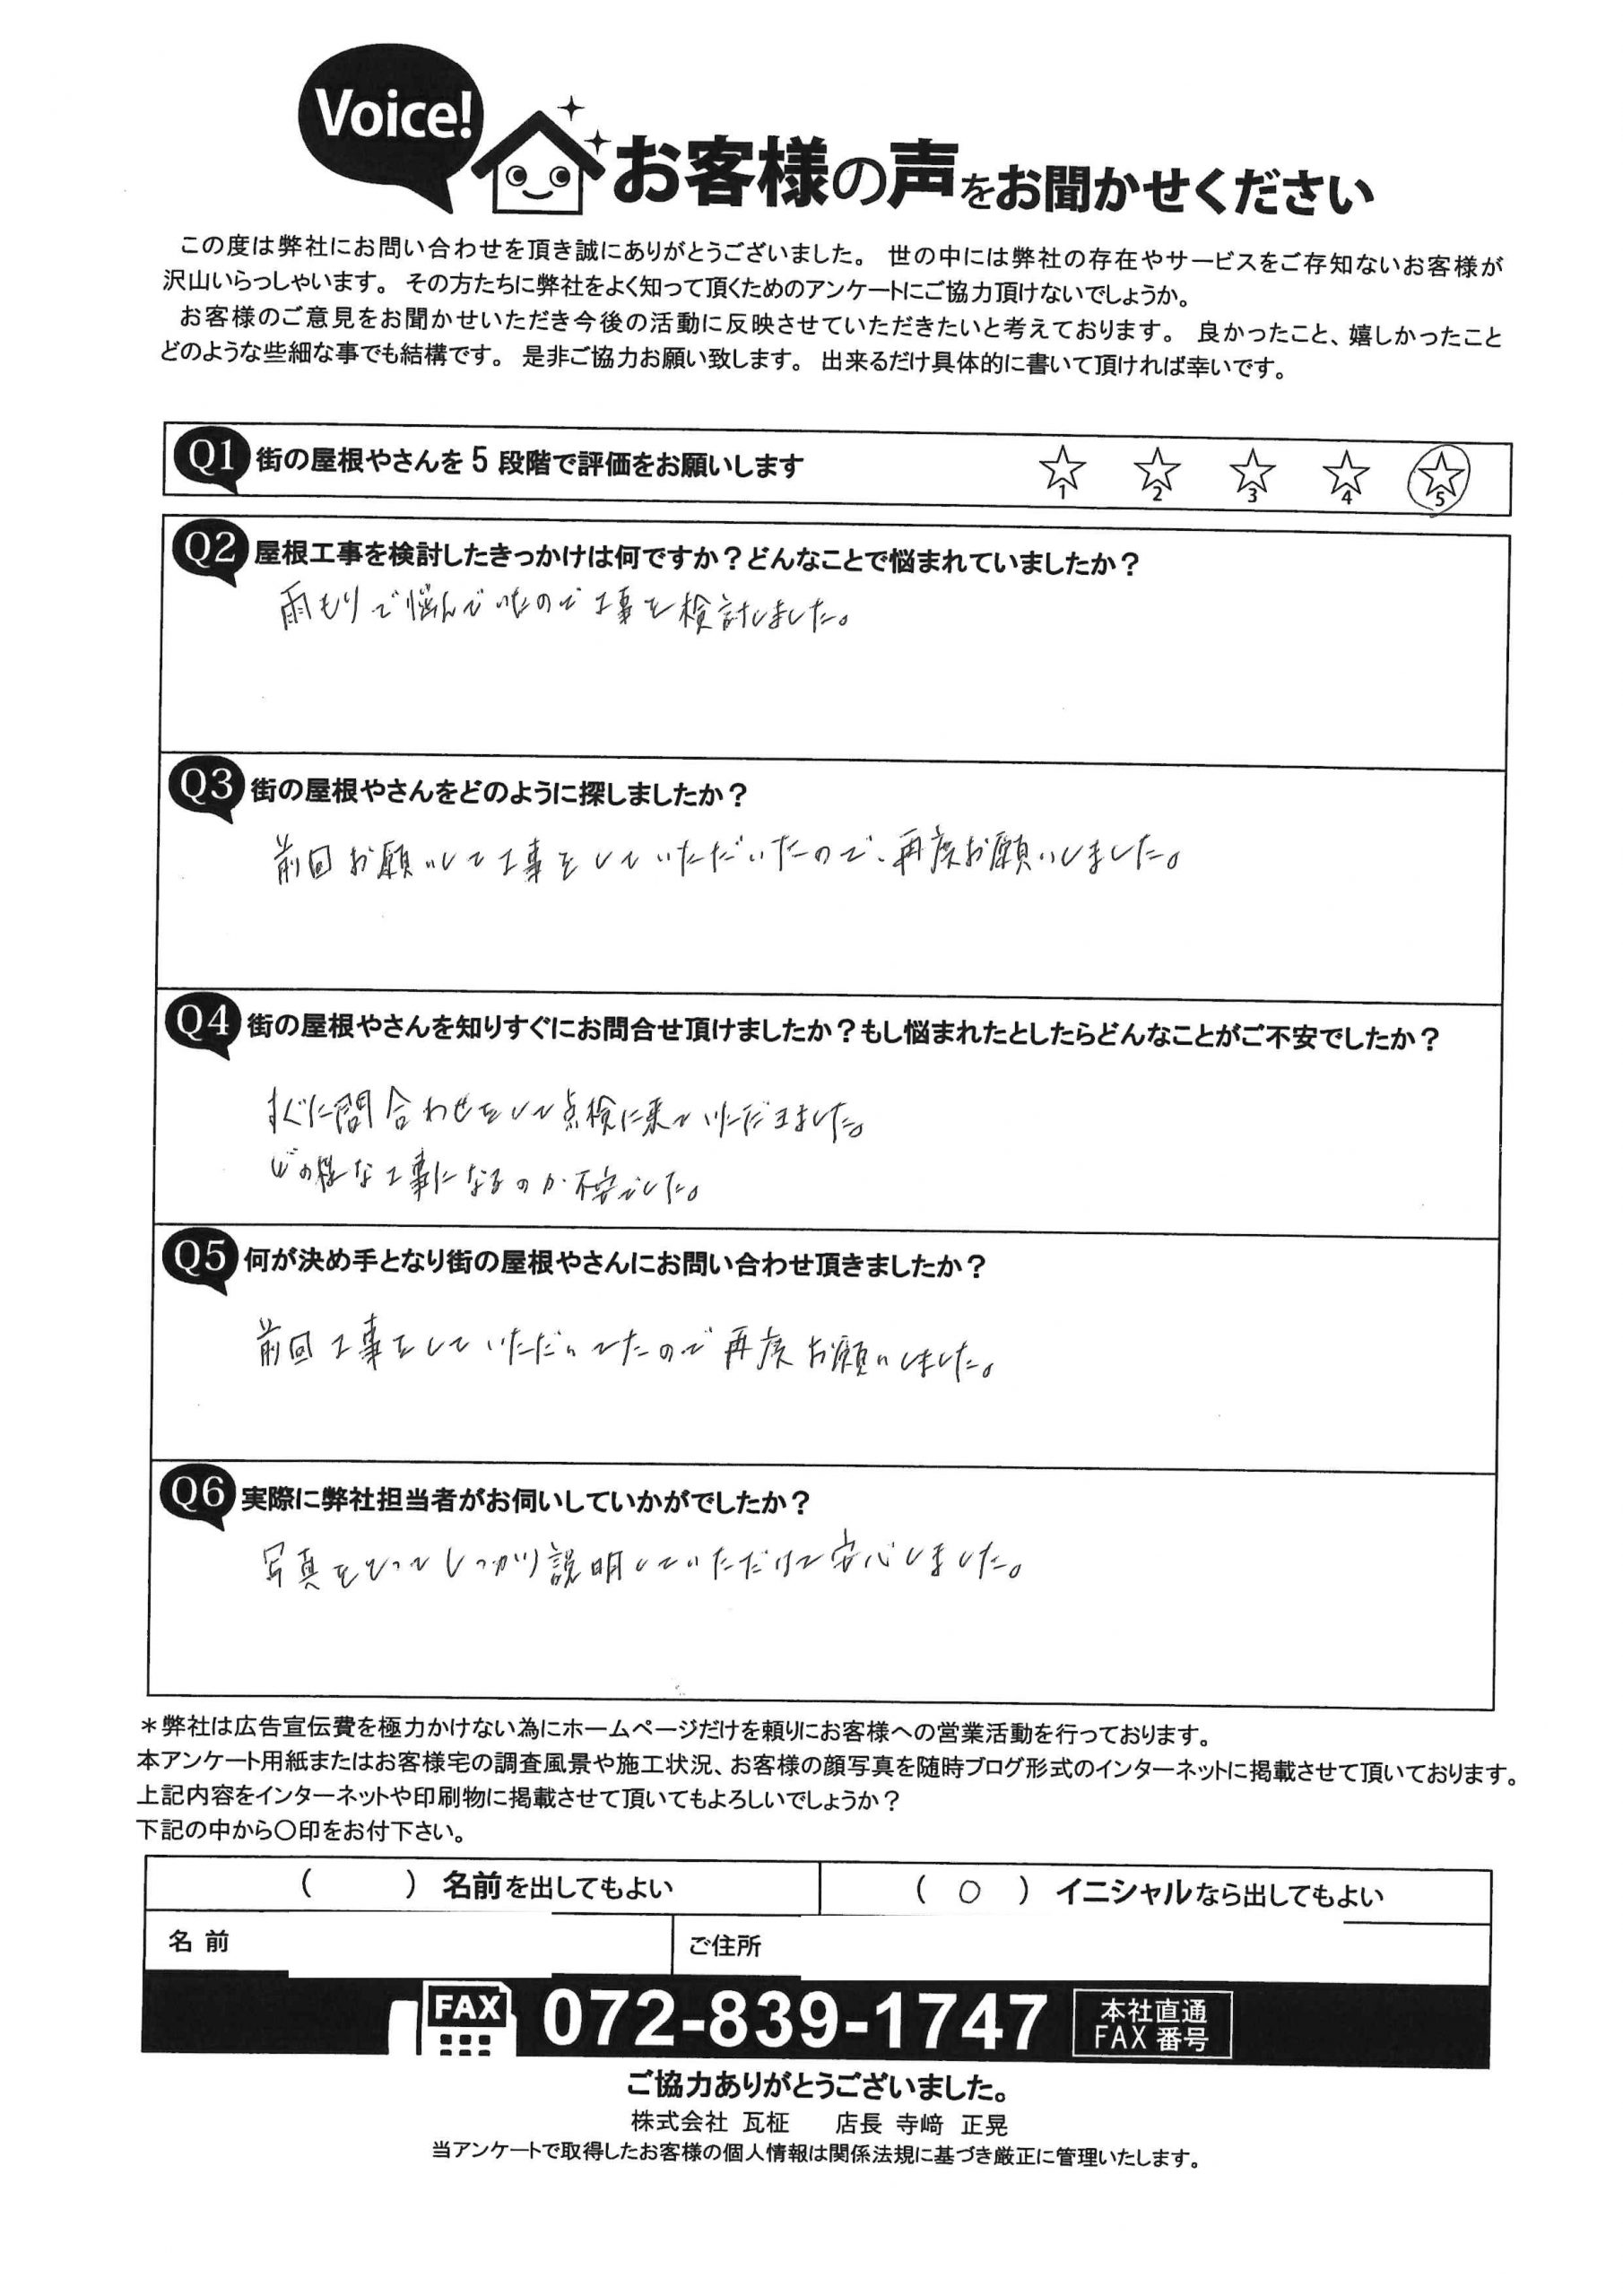 Voice!
お客様の声をお聞かせください
この度は弊社にお問い合わせを頂き誠にありがとうございました。 世の中には弊社の存在やサービスをご存知ないお客様が
沢山いらっしゃいます。 その方たちに弊社をよく知って頂くためのアンケートにご協力頂けないでしょうか。
お客様のご意見をお聞かせいただき今後の活動に反映させていただきたいと考えております。 良かったこと、嬉しかったこと
どのような些細な事でも結構です。 是非ご協力お願い致します。 出来るだけ具体的に書いて頂ければ幸いです。
Q1 街の屋根やさんを5段階で評価をお願いします ☆1 ☆2 ☆3 ☆4 ☆5
Q2 屋根工事を検討したきっかけは何ですか？どんなことで悩まれていましたか？
雨もりで悩んでいたので工事を検討しました。
Q3 街の屋根やさんをどのように探しましたか？
前回お願いして工事をしていただいたので、再度お願いしました。
Q4 街の屋根やさんを知りすぐにお問合せ頂けましたか？もし悩まれたとしたらどんなことがご不安でしたか？
すぐに問合わせをして点検に来ていただきました。
どの様な工事になるのか不安でした。
Q5 何が決め手となり街の屋根やさんにお問い合わせ頂きましたか？
前回工事をしていただいてたので再度お願いしました。
Q6 実際に弊社担当者がお伺いしていかがでしたか？
写真をとってしっかり説明していただけて安心しました。
＊弊社は広告宣伝費を極力かけない為にホームページだけを頼りにお客様への営業活動を行っております。
本アンケート用紙またはお客様宅の調査風景や施工状況、お客様の顔写真を随時ブログ形式のインターネットに掲載させて頂いております。
上記内容をインターネットや印刷物に掲載させて頂いてもよろしいでしょうか？
下記の中から〇印をお付下さい。
（ ）名前を出してもよい （ ○ ）イニシャルなら出してもよい
名前 ご住所
FAX 072-839-1747 本社直通
FAX番号
ご協力ありがとうございました。
株式会社 瓦柾 店長 寺﨑 正晃
当アンケートで取得したお客様の個人情報は関係法規に基づき厳正に管理いたします。